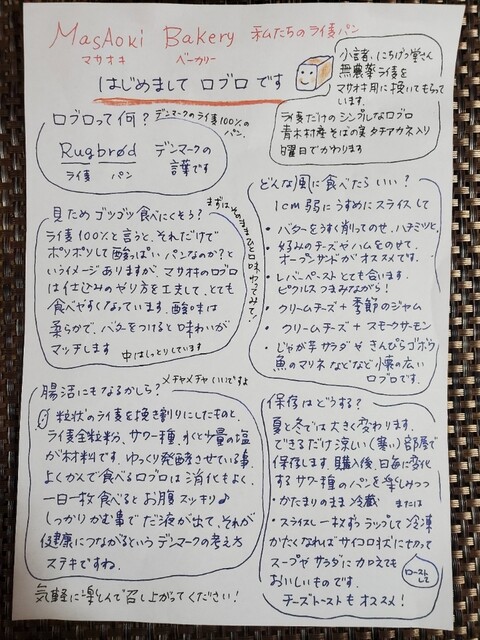 MasAoki Bakery 私たちのライ麦パン
マサオキ ベーカリー
はじめまして ロブロ です
小諸、にちげつ堂さん
無農薬ライ麦を
マサオキ用に挽いてもらって
います。
ライ麦だけのシンプルなロブロ
青木村産そばの実タチアカネ入り
曜日でかわります
ロブロって何？ デンマークのライ麦100%の
パン。
Rugbrød デンマークの
ライ麦 パン 言葉です
見ためゴツゴツ食べにくそう？
まずはそのままひと口味わってみて！
ライ麦100%と言うと、それだけで
ボソボソして酸っぱいパンなのか？と
いうイメージありますが、マサオキのロブロ
は仕込みのやり方を工夫して、とても
食べやすくなっています。酸味は
柔らかで、バターをつけると味わいが
マッチします
中はしっとりしています
どんな風に食べたらいい？
1cm弱にうすめにスライスして
・バターをうすく削ってのせ、ハチミツと。
・好みのチーズやハムをのせて、
オープンサンドがオススメです。
・レバーペーストとても合います。
ピクルスつまみながら！
・クリームチーズ＋季節のジャム
・クリームチーズ＋スモークサーモン
・じゃが芋サラダやきんぴらゴボウ
魚のマリネなどなど小懐の広い
ロブロです。
腸活にもなるかしら？ メチャメチャいいですよ
粒状のライ麦を挽き割りにしたものと、
ライ麦全粒粉、サワー種、水と少量の塩
が材料です。ゆっくり発酵させている事、
よくかんで食べるロブロは消化もよく、
一日一枚食べるとお腹スッキリ♪
しっかりかむ事でだ液が出て、それが
健康につながるというデンマークの考え方
ステキですね。
気軽に楽しんで召し上がってください！
保存はどうする？
夏と冬では大きく変わります。
できるだけ涼しい（寒い）部屋で
保存します。購入後、日毎に変化
するサワー種のパンを楽しみつつ
・かたまりのまま冷蔵 または
・スライスし一枚ずつラップして冷凍
かたくなればサイコロ状に切って
スープやサラダにカロスても
ローストして
おいしいものです。
チーズトーストもオススメ！